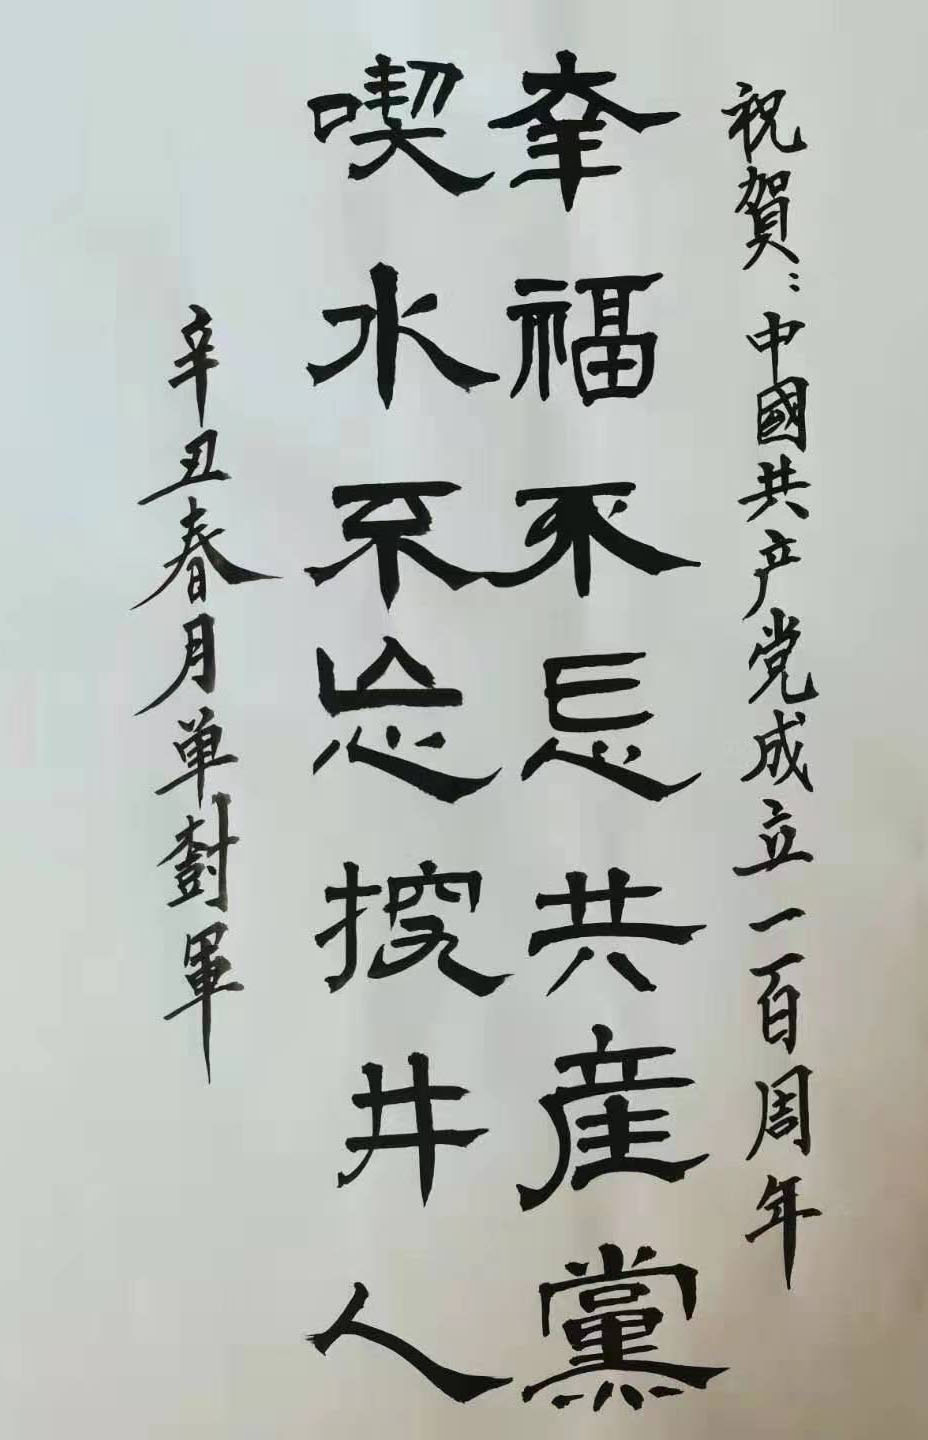 祝賀：中國共产党成立一百周年
幸福不忘共産黨
喫水不忘挖井人
辛丑春月单樹軍